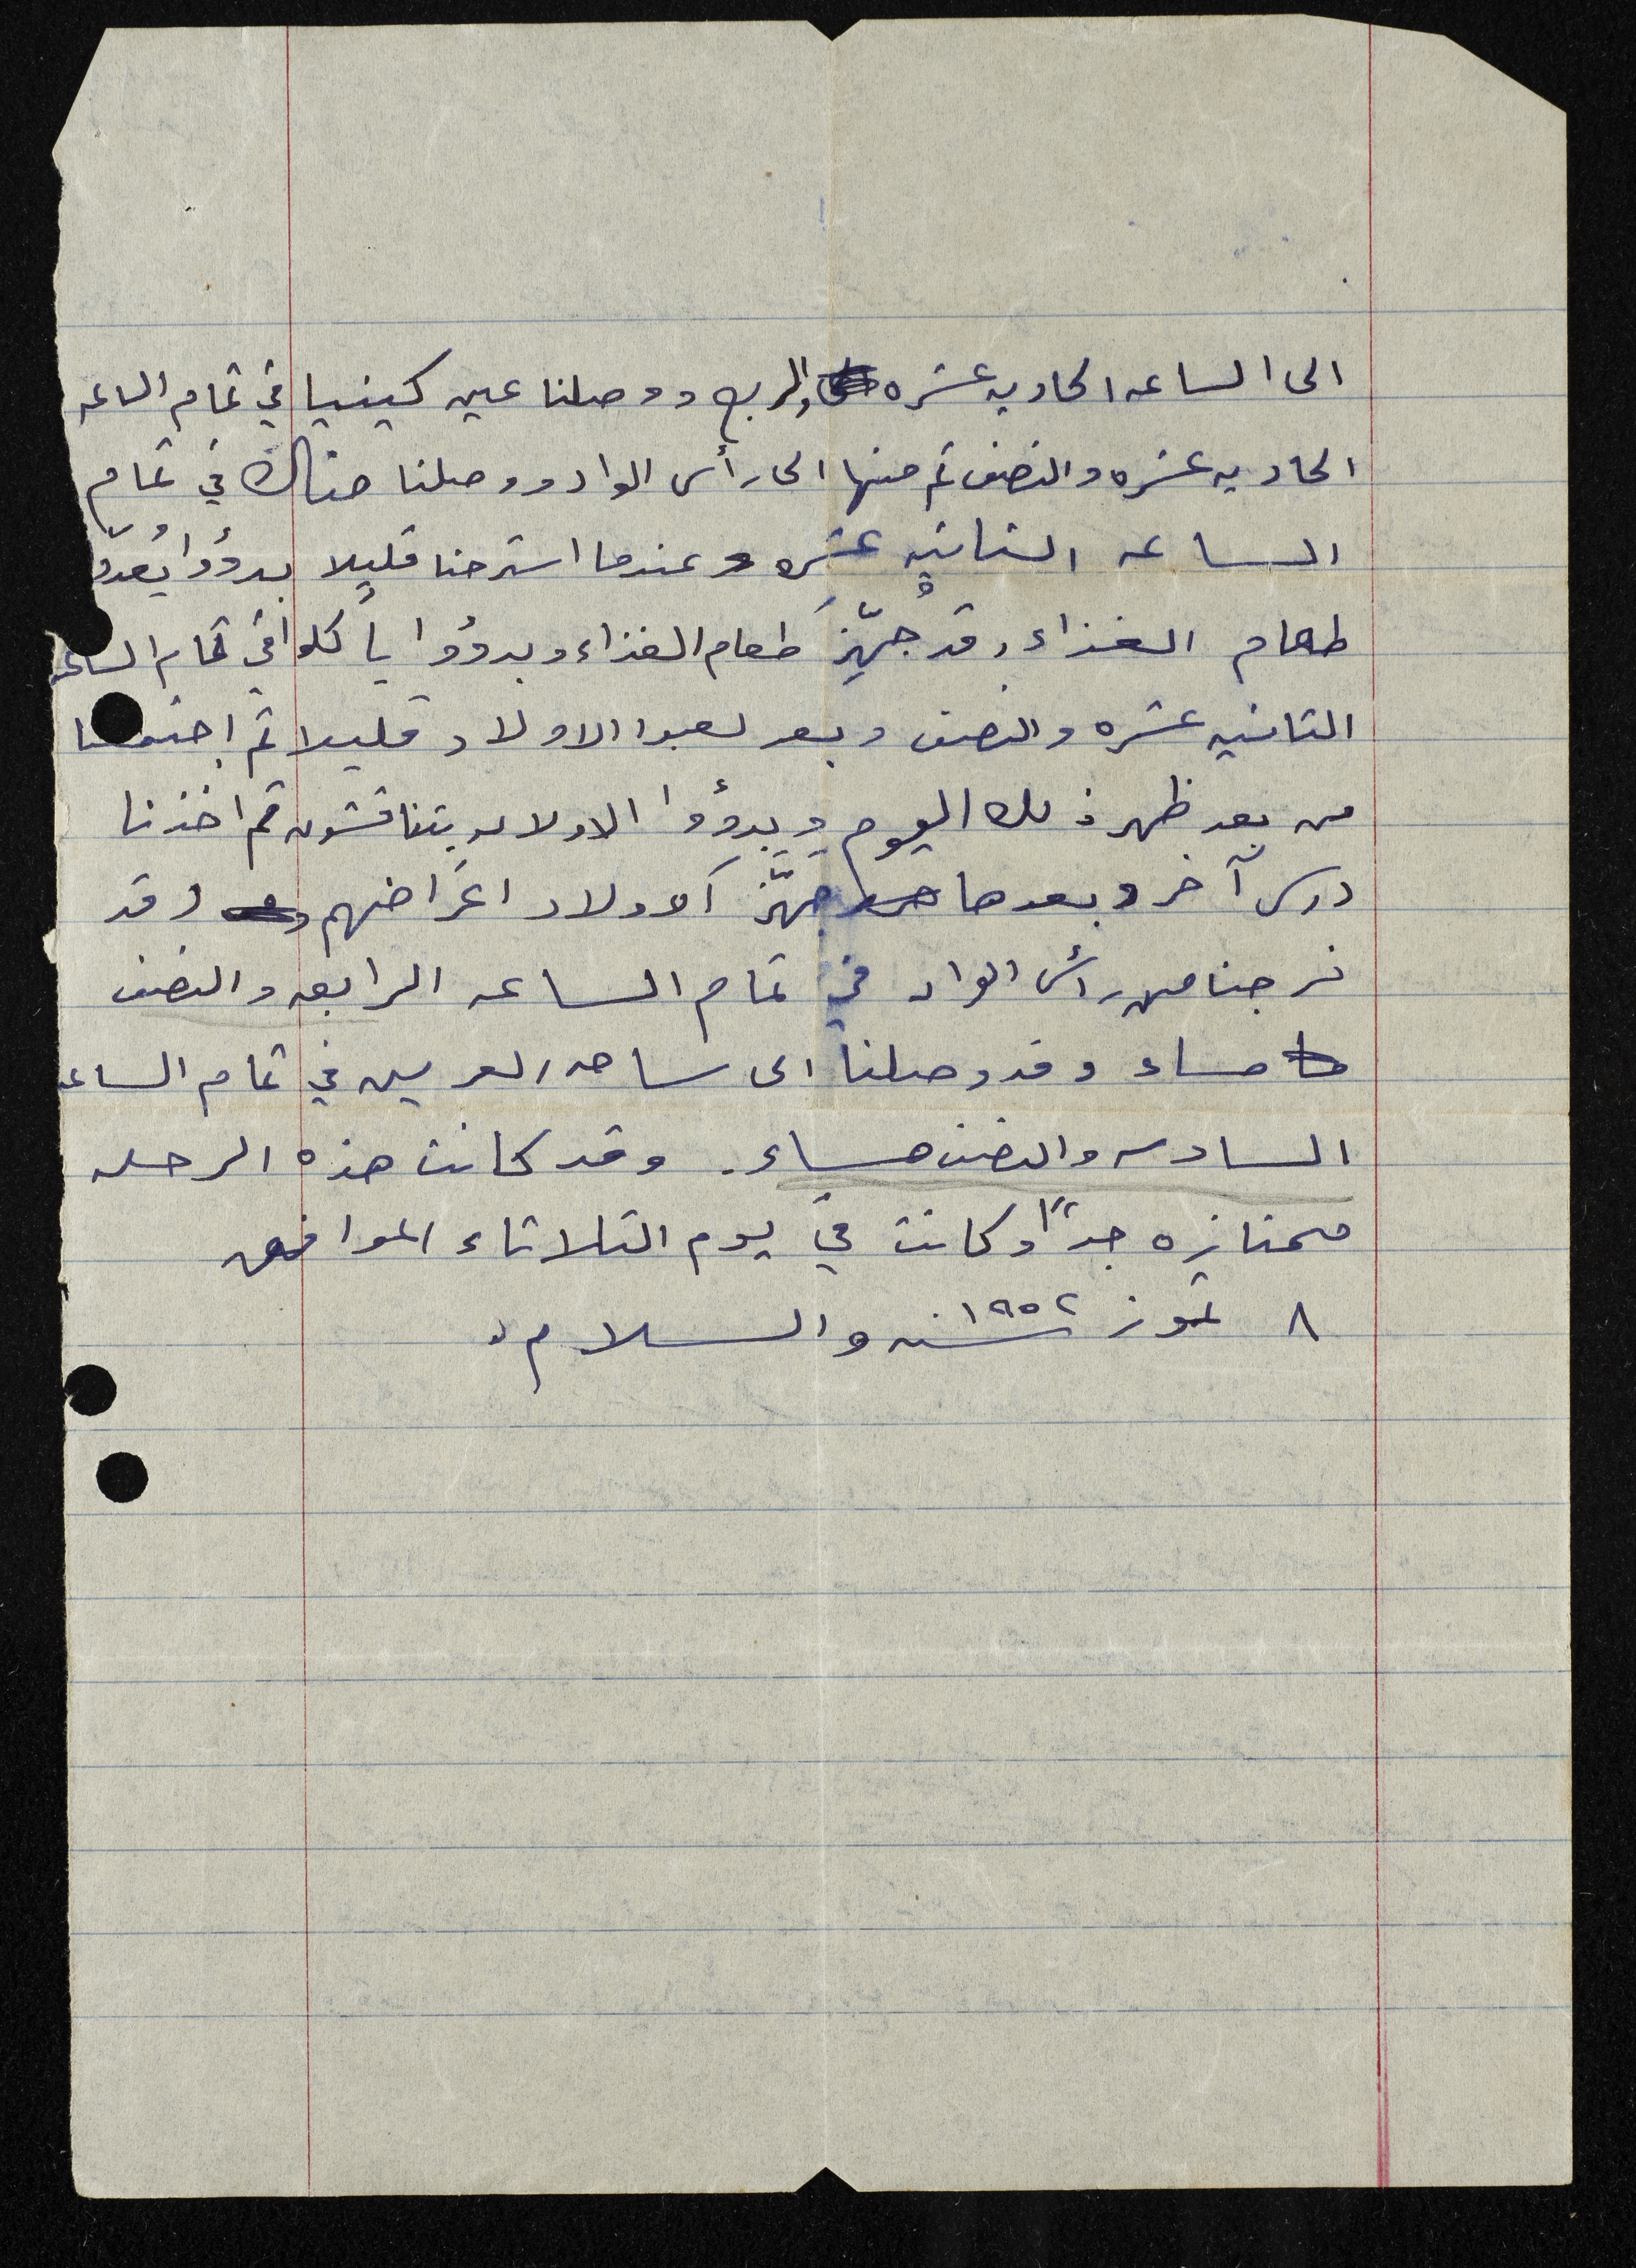 الى الساعه الحاديه عشره والربع ووصلنا عين كينيا في تمام الساعه
الحاديه عشره والنصف ثم منها الى رأس الواد ووصلنا هناك في تمام
الساعه الثانيه عشره وعندما استرحنا قليلا بدؤوا يُعدّو
طعام الغذاء وقد جُهِّزَ طعام الغذاء وبدؤوا يأكلوا في تمام الساعه
الثانيه عشره والنصف وبعد لعبوا الاولاد قليلا ثم اجتمعنا
من بعد ظهر ذلك اليوم وبدؤوا الاولاد يتناقشون ثم اخذنا
درس آخر وبعدها جهَّز الاولاد اغراضهم وقد
خرجنا من رأس الواد في تمام الساعه الرابعه والنصف
مساء وقد وصلنا الى ساحه العرين في تمام الساعه
السادسه والنصف مساء. وقد كانت هذه الرحله
ممتازه جدًا وكانت في يوم الثلاثاء الموافق
٨ تموز سنه ١٩٥٢ والسلام.